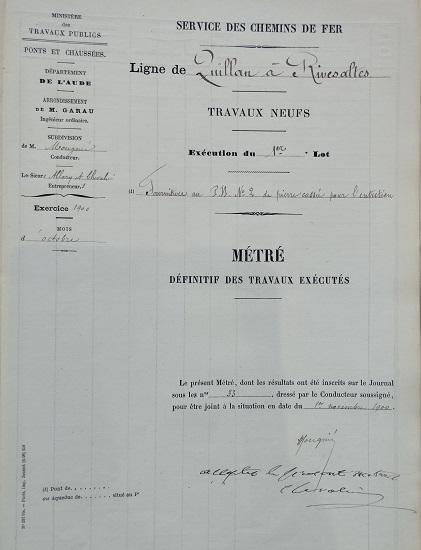 MINISTÈRE
des
TRAVAUX PUBLICS
PONTS ET CHAUSSÉES.
DÉPARTEMENT
DE L'AUDE
ARRONDISSEMENT
DE M. GARAU
Ingénieur ordinaire.
SUBDIVISION
de M. Mouguié
Conducteur.
Le Sieur Allary et Chevalié
Entrepreneurs
Exercice 1900
MOIS
d'octobre
SERVICE DES CHEMINS DE FER
Ligne de Quillan à Rivesaltes
TRAVAUX NEUFS
Exécution du 1er Lot
(1) Fourniture au P.N. No 2 de pierre cassée pour l'entretien
MÉTRÉ
DÉFINITIF DES TRAVAUX EXÉCUTÉS
Le présent Métré, dont les résultats ont été inscrits sur le Journal
sous les nos 33, dressé par le Conducteur soussigné,
pour être joint à la situation en date du 1er novembre 1900.
Mouguié
accepté le présent métré
(1) Pont de........
ou aqueduc de....... situé au Pt